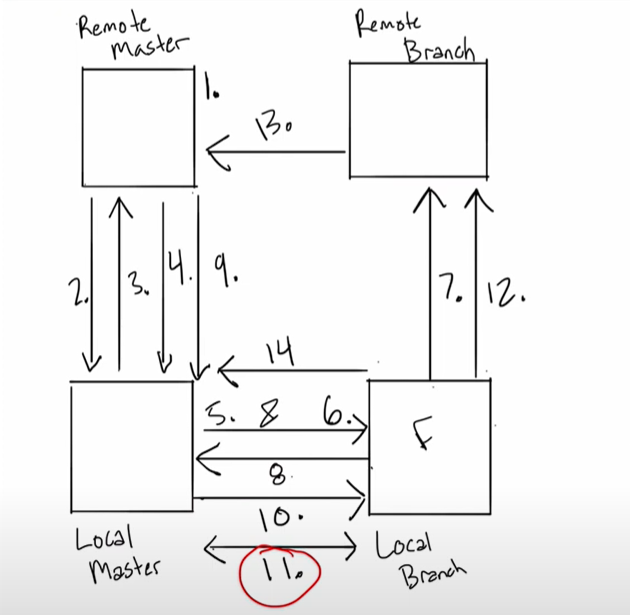 Remote
Master
Remote
Branch
1.
13.
2.
3.
4.
9.
7.
12.
14
5. 8 6.
F
8.
10.
11.
Local
Master
Local
Branch